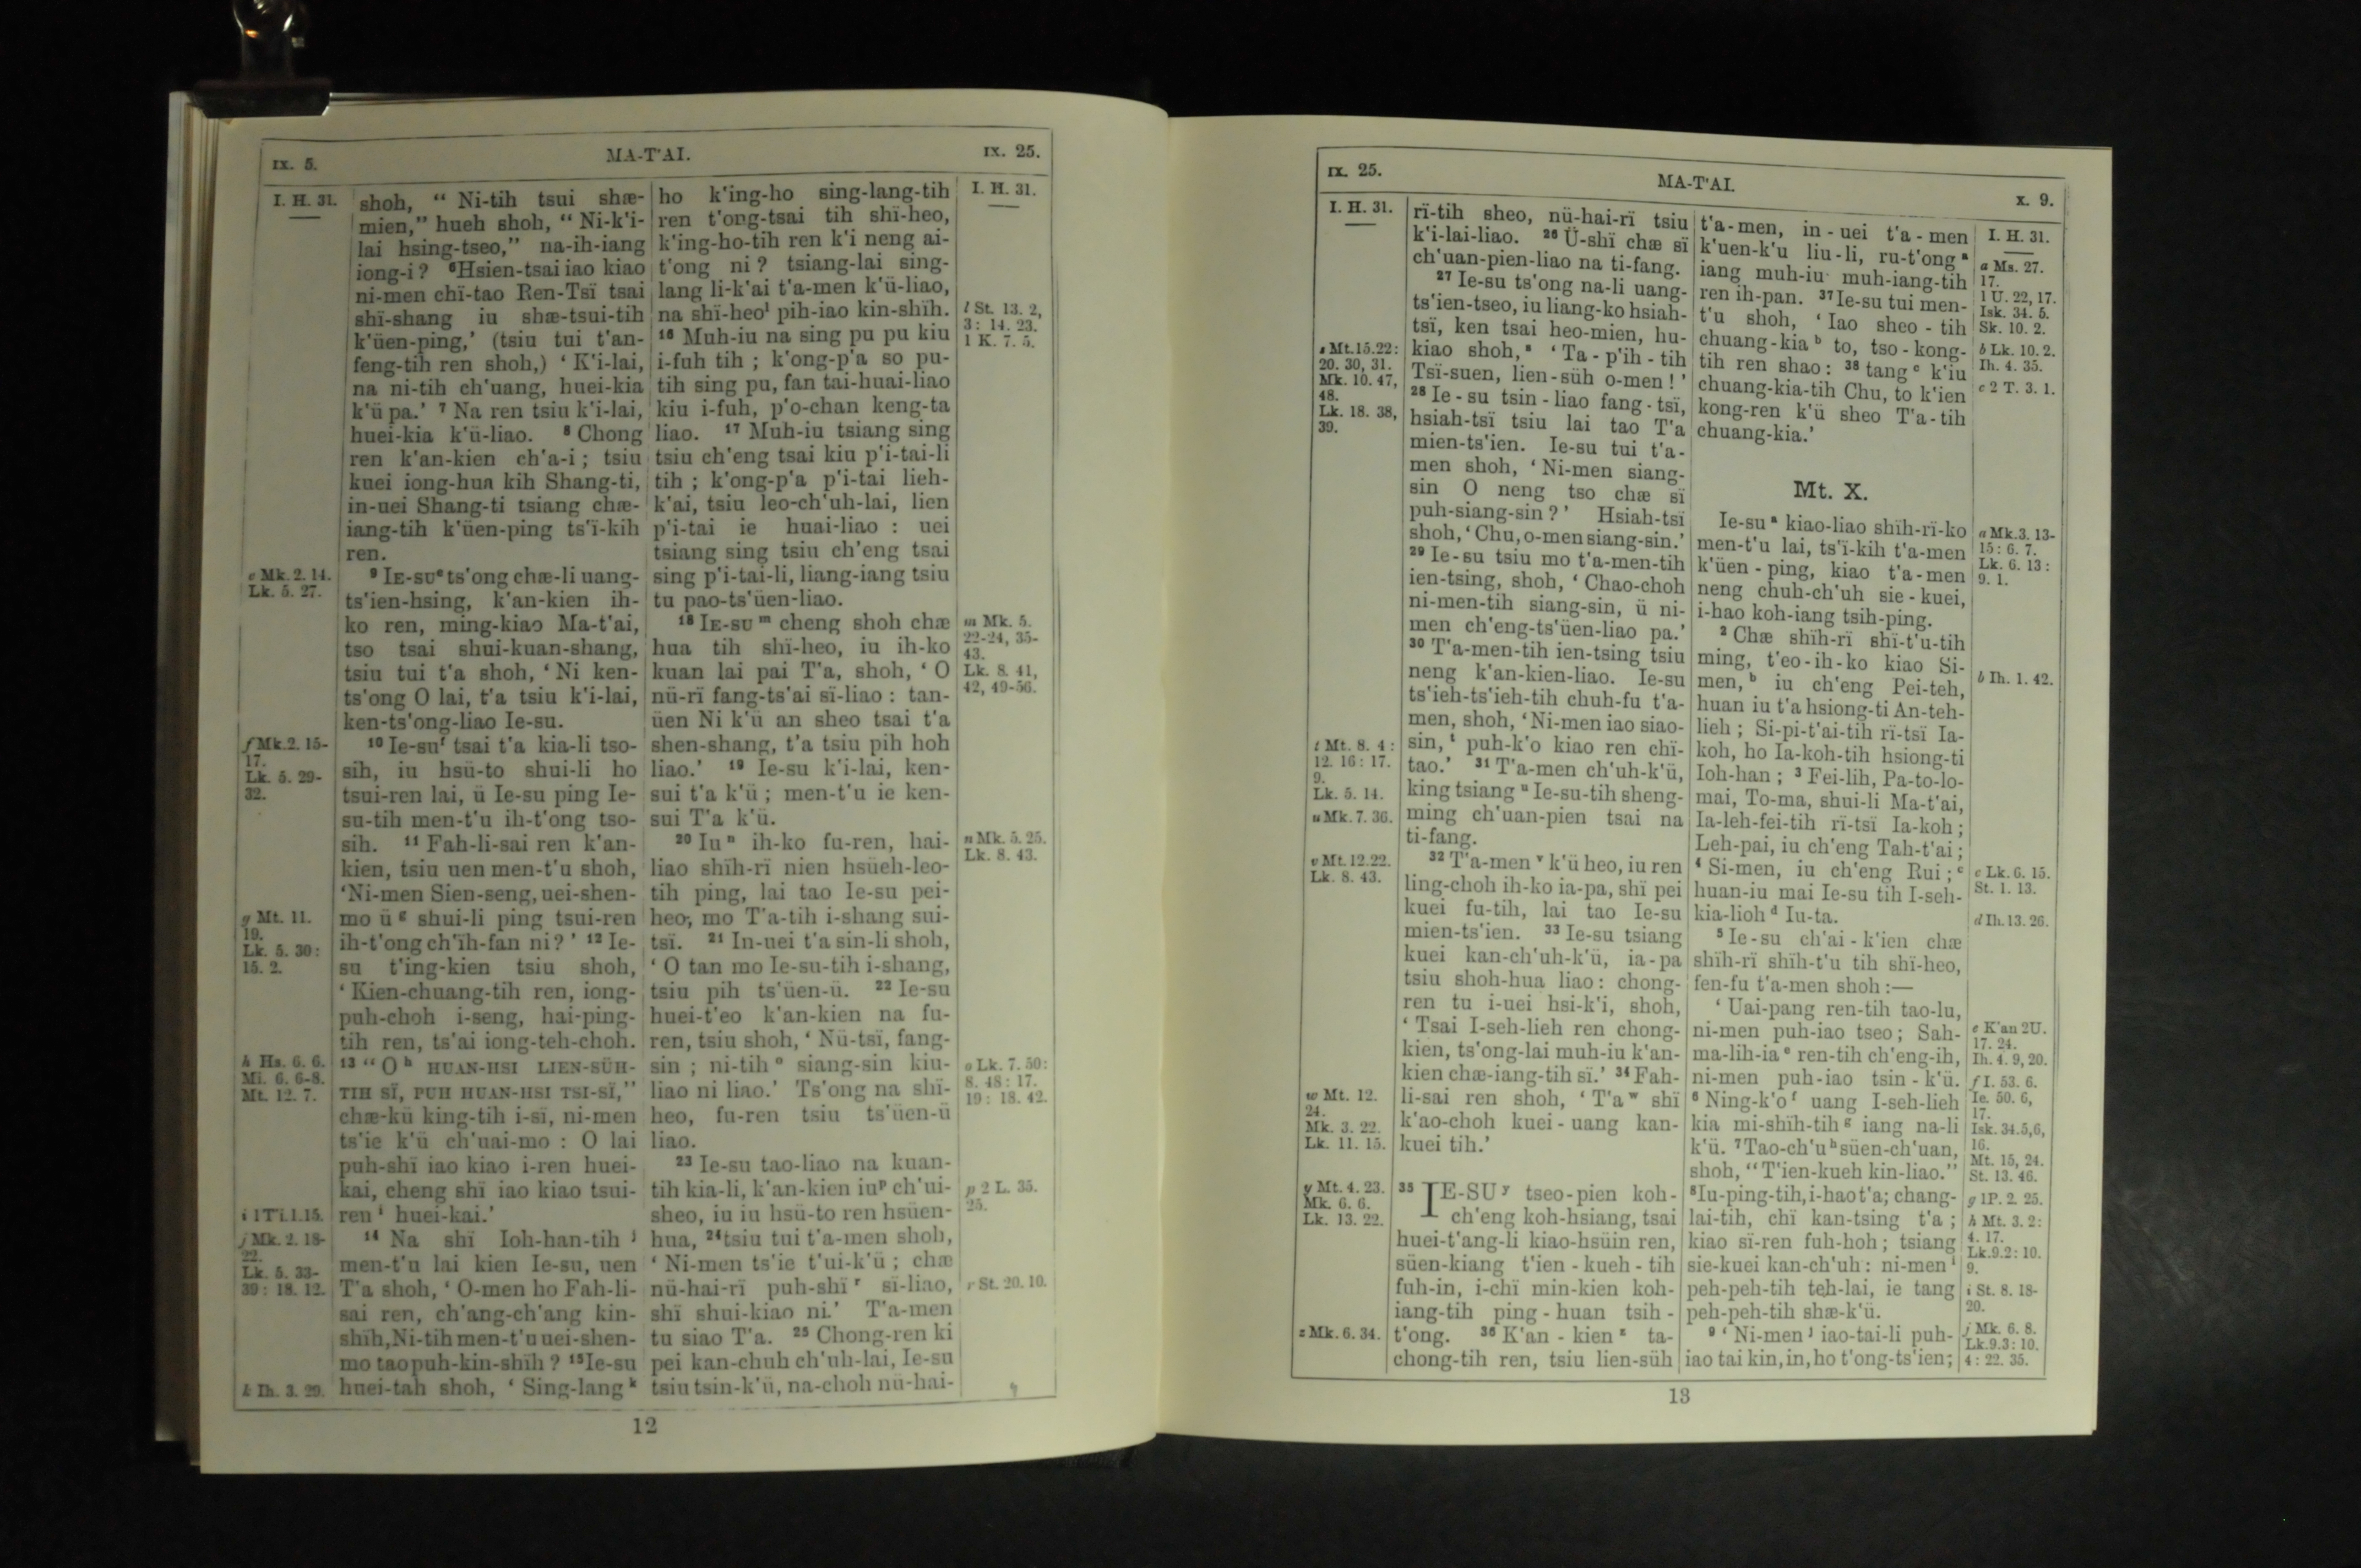 IX. 5.
MA-T'AI.
IX. 25.
I. H. 31.
shoh, “ Ni-tih tsui shæ-
mien,” hueh shoh, “ Ni-k'i-
lai hsing-tseo,” na-ih-iang
iong-i? ⁶Hsien-tsai iao kiao
ni-men chï-tao Ren-Tsï tsai
shï-shang iu shæ-tsui-tih
k'üen-ping,’ (tsiu tui t'an-
feng-tih ren shoh,) ‘ K'i-lai,
na ni-tih ch'uang, huei-kia
k'ü pa.’ ⁷ Na ren tsiu k'i-lai,
huei-kia k'ü-liao. ⁸ Chong
ren k'an-kien ch'a-i; tsiu
kuei iong-hua kih Shang-ti,
in-uei Shang-ti tsiang chæ-
iang-tih k'üen-ping ts'ï-kih
ren.
⁹ IE-SUᵉ ts'ong chæ-li uang-
ts'ien-hsing, k'an-kien ih-
ko ren, ming-kiao Ma-t'ai,
tso tsai shui-kuan-shang,
tsiu tui t'a shoh, ‘ Ni ken-
ts'ong O lai, t'a tsiu k'i-lai,
ken-ts'ong-liao Ie-su.
¹⁰ Ie-suᶠ tsai t'a kia-li tso-
sih, iu hsü-to shui-li ho
tsui-ren lai, ü Ie-su ping Ie-
su-tih men-t'u ih-t'ong tso-
sih. ¹¹ Fah-li-sai ren k'an-
kien, tsiu uen men-t'u shoh,
‘Ni-men Sien-seng, uei-shen-
mo ü ᵍ shui-li ping tsui-ren
ih-t'ong ch'ïh-fan ni?’ ¹² Ie-
su t'ing-kien tsiu shoh,
‘ Kien-chuang-tih ren, iong-
puh-choh i-seng, hai-ping-
tih ren, ts'ai iong-teh-choh.
¹³ “ O ʰ HUAN-HSI LIEN-SÜH-
TIH SÏ, PUH HUAN-HSI TSI-SÏ,”
chæ-kü king-tih i-sï, ni-men
ts'ie k'ü ch'uai-mo : O lai
puh-shï iao kiao i-ren huei-
kai, cheng shï iao kiao tsui-
ren ⁱ huei-kai.’
¹⁴ Na shï Ioh-han-tih ʲ
men-t'u lai kien Ie-su, uen
T'a shoh, ‘ O-men ho Fah-li-
sai ren, ch'ang-ch'ang kin-
shïh, Ni-tih men-t'u uei-shen-
mo tao puh-kin-shïh? ¹⁵Ie-su
huei-tah shoh, ‘ Sing-lang ᵏ
e Mk. 2. 14.
Lk. 5. 27.
f Mk. 2. 15-
17.
Lk. 5. 29-
32.
g Mt. 11.
19.
Lk. 5. 30:
15. 2.
h Hs. 6. 6.
Mi. 6. 6-8.
Mt. 12. 7.
i 1 Ti. 1. 15.
j Mk. 2. 18-
22.
Lk. 5. 33-
39: 18. 12.
k Ih. 3. 29.
ho k'ing-ho sing-lang-tih
ren t'ong-tsai tih shï-heo,
k'ing-ho-tih ren k'i neng ai-
t'ong ni? tsiang-lai sing-
lang li-k'ai t'a-men k'ü-liao,
na shï-heoˡ pih-iao kin-shïh.
¹⁶ Muh-iu na sing pu pu kiu
i-fuh tih ; k'ong-p'a so pu-
tih sing pu, fan tai-huai-liao
kiu i-fuh, p'o-chan keng-ta
liao. ¹⁷ Muh-iu tsiang sing
tsiu ch'eng tsai kiu p'i-tai-li
tih ; k'ong-p'a p'i-tai lieh-
k'ai, tsiu leo-ch'uh-lai, lien
p'i-tai ie huai-liao : uei
tsiang sing tsiu ch'eng tsai
sing p'i-tai-li, liang-iang tsiu
tu pao-ts'üen-liao.
¹⁸ IE-SU ᵐ cheng shoh chæ
hua tih shï-heo, iu ih-ko
kuan lai pai T'a, shoh, ‘ O
nü-rï fang-ts'ai sï-liao : tan-
üen Ni k'ü an sheo tsai t'a
shen-shang, t'a tsiu pih hoh
liao.’ ¹⁹ Ie-su k'i-lai, ken-
sui t'a k'ü ; men-t'u ie ken-
sui T'a k'ü.
²⁰ Iu ⁿ ih-ko fu-ren, hai-
liao shïh-rï nien hsüeh-leo-
tih ping, lai tao Ie-su pei-
heo, mo T'a-tih i-shang sui-
tsï. ²¹ In-uei t'a sin-li shoh,
‘ O tan mo Ie-su-tih i-shang,
tsiu pih ts'üen-ü. ²² Ie-su
huei-t'eo k'an-kien na fu-
ren, tsiu shoh, ‘ Nü-tsï, fang-
sin ; ni-tih ᵒ siang-sin kiu-
liao ni liao.’ Ts'ong na shï-
heo, fu-ren tsiu ts'üen-ü
liao.
²³ Ie-su tao-liao na kuan-
tih kia-li, k'an-kien iuᵖ ch'ui-
sheo, iu iu hsü-to ren hsüen-
hua, ²⁴tsiu tui t'a-men shoh,
‘ Ni-men ts'ie t'ui-k'ü ; chæ
nü-hai-rï puh-shï ʳ sï-liao,
shï shui-kiao ni.’ T'a-men
tu siao T'a. ²⁵ Chong-ren ki
pei kan-chuh ch'uh-lai, Ie-su
tsiu tsin-k'ü, na-choh nü-hai-
I. H. 31.
l St. 13. 2,
3: 14. 23.
1 K. 7. 5.
m Mk. 5.
22-24, 35-
43.
Lk. 8. 41,
42, 49-56.
n Mk. 5. 25.
Lk. 8. 43.
o Lk. 7. 50:
8. 48: 17.
19: 18. 42.
p 2 L. 35.
25.
r St. 20. 10.
12
IX. 25.
MA-T'AI.
X. 9.
I. H. 31.
s Mt. 15. 22:
20. 30, 31.
Mk. 10. 47,
48.
Lk. 18. 38,
39.
t Mt. 8. 4:
12. 16: 17.
9.
Lk. 5. 14.
u Mk. 7. 36.
v Mt. 12. 22.
Lk. 8. 43.
w Mt. 12.
24.
Mk. 3. 22.
Lk. 11. 15.
y Mt. 4. 23.
Mk. 6. 6.
Lk. 13. 22.
z Mk. 6. 34.
rï-tih sheo, nü-hai-rï tsiu
k'i-lai-liao. ²⁶ Ü-shï chæ sï
ch'uan-pien-liao na ti-fang.
²⁷ Ie-su ts'ong na-li uang-
ts'ien-tseo, iu liang-ko hsiah-
tsï, ken tsai heo-mien, hu-
kiao shoh,ˢ ‘ Ta-p'ih-tih
Tsï-suen, lien-süh o-men!’
²⁸ Ie-su tsin-liao fang-tsï,
hsiah-tsï tsiu lai tao T'a
mien-ts'ien. Ie-su tui t'a-
men shoh, ‘ Ni-men siang-
sin O neng tso chæ sï
puh-siang-sin?’ Hsiah-tsï
shoh, ‘ Chu, o-men siang-sin.’
²⁹ Ie-su tsiu mo t'a-men-tih
ien-tsing, shoh, ‘ Chao-choh
ni-men-tih siang-sin, ü ni-
men ch'eng-ts'üen-liao pa.’
³⁰ T'a-men-tih ien-tsing tsiu
neng k'an-kien-liao. Ie-su
ts'ieh-ts'ieh-tih chuh-fu t'a-
men, shoh, ‘Ni-men iao siao-
sin,ᵗ puh-k'o kiao ren chï-
tao.’ ³¹ T'a-men ch'uh-k'ü,
king tsiang ᵘ Ie-su-tih sheng-
ming ch'uan-pien tsai na
ti-fang.
³² T'a-men ᵛ k'ü heo, iu ren
ling-choh ih-ko ia-pa, shï pei
kuei fu-tih, lai tao Ie-su
mien-ts'ien. ³³ Ie-su tsiang
kuei kan-ch'uh-k'ü, ia-pa
tsiu shoh-hua liao: chong-
ren tu i-uei hsi-k'i, shoh,
‘ Tsai I-seh-lieh ren chong-
kien, ts'ong-lai muh-iu k'an-
kien chæ-iang-tih sï.’ ³⁴ Fah-
li-sai ren shoh, ‘ T'a ʷ shï
k'ao-choh kuei-uang kan-
kuei tih.’
³⁵ IE-SUʸ tseo-pien koh-
ch'eng koh-hsiang, tsai
huei-t'ang-li kiao-hsüin ren,
süen-kiang t'ien-kueh-tih
fuh-in, i-chï min-kien koh-
iang-tih ping-huan tsih-
t'ong. ³⁶ K'an-kien ᶻ ta-
chong-tih ren, tsiu lien-süh
t'a-men, in-uei t'a-men
k'uen-k'u liu-li, ru-t'ong ᵃ
iang muh-iu muh-iang-tih
ren ih-pan. ³⁷Ie-su tui men-
t'u shoh, ‘ Iao sheo-tih
chuang-kia ᵇ to, tso-kong-
tih ren shao: ³⁸ tang ᶜ k'iu
chuang-kia-tih Chu, to k'ien
kong-ren k'ü sheo T'a-tih
chuang-kia.’
Mt. X.
Ie-su ᵃ kiao-liao shïh-rï-ko
men-t'u lai, ts'ï-kih t'a-men
k'üen-ping, kiao t'a-men
neng chuh-ch'uh sie-kuei,
i-hao koh-iang tsih-ping.
² Chæ shïh-rï shï-t'u-tih
ming, t'eo-ih-ko kiao Si-
men,ᵇ iu ch'eng Pei-teh,
huan iu t'a hsiong-ti An-teh-
lieh ; Si-pi-t'ai-tih rï-tsï Ia-
koh, ho Ia-koh-tih hsiong-ti
Ioh-han ; ³ Fei-lih, Pa-to-lo-
mai, To-ma, shui-li Ma-t'ai,
Ia-leh-fei-tih rï-tsï Ia-koh ;
Leh-pai, iu ch'eng Tah-t'ai ;
⁴ Si-men, iu ch'eng Rui ;ᶜ
huan-iu mai Ie-su tih I-seh-
kia-lioh ᵈ Iu-ta.
⁵ Ie-su ch'ai-k'ien chæ
shïh-rï shïh-t'u tih shï-heo,
fen-fu t'a-men shoh :—
‘ Uai-pang ren-tih tao-lu,
ni-men puh-iao tseo ; Sah-
ma-lih-ia ᵉ ren-tih ch'eng-ih,
ni-men puh-iao tsin-k'ü.
⁶ Ning-k'o ᶠ uang I-seh-lieh
kia mi-shïh-tih ᵍ iang na-li
k'ü. ⁷Tao-ch'u ʰ süen-ch'uan,
shoh, “T'ien-kueh kin-liao.”
⁸Iu-ping-tih, i-hao t'a; chang-
lai-tih, chï kan-tsing t'a ;
kiao sï-ren fuh-hoh ; tsiang
sie-kuei kan-ch'uh: ni-men ⁱ
peh-peh-tih teh-lai, ie tang
peh-peh-tih shæ-k'ü.
⁹ ‘ Ni-men ʲ iao-tai-li puh-
iao tai kin, in, ho t'ong-ts'ien;
I. H. 31.
a Ms. 27.
17.
1 U. 22, 17.
Isk. 34. 5.
Sk. 10. 2.
b Lk. 10. 2.
Ih. 4. 35.
c 2 T. 3. 1.
a Mk. 3. 13-
15: 6. 7.
Lk. 6. 13:
9. 1.
b Ih. 1. 42.
c Lk. 6. 15.
St. 1. 13.
d Ih. 13. 26.
e K'an 2U.
17. 24.
Ih. 4. 9, 20.
f I. 53. 6.
Ie. 50. 6,
17.
Isk. 34. 5, 6,
16.
Mt. 15, 24.
St. 13. 46.
g 1P. 2. 25.
h Mt. 3. 2:
4. 17.
Lk. 9. 2: 10.
9.
i St. 8. 18-
20.
j Mk. 6. 8.
Lk. 9. 3: 10.
4: 22. 35.
13